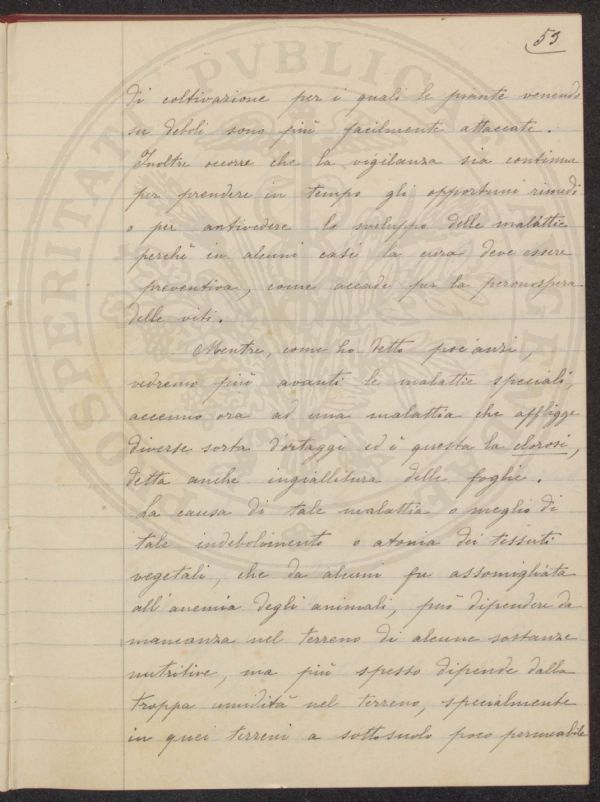 53
di coltivazione per i quali le piante venendo
su deboli sono più facilmente attaccate.
Inoltre occorre che la vigilanza sia continua
per prendere in tempo gli opportuni rimedi
o per antivedere lo sviluppo delle malattie
perchè in alcuni casi la cura deve essere
preventiva, come accade per la peronospera
delle viti.
Mentre, come ho detto poc'anzi,
vedremo più avanti le malattie speciali,
accenno ora ad una malattia che affligge
diverse sorta d'ortaggi ed è questa la clorosi,
detta anche ingiallitura delle foglie.
La causa di tale malattia o meglio di
tale indebolimento o atonia dei tessuti
vegetali, che da alcuni fu assomigliata
all'anemia degli animali, può dipendere da
mancanza nel terreno di alcune sostanze
nutritive, ma più spesso dipende dalla
troppa umidità nel terreno, specialmente
in quei terreni a sottosuolo poco permeabile
PROSPERITATI PVBLICAE AVGENDAE